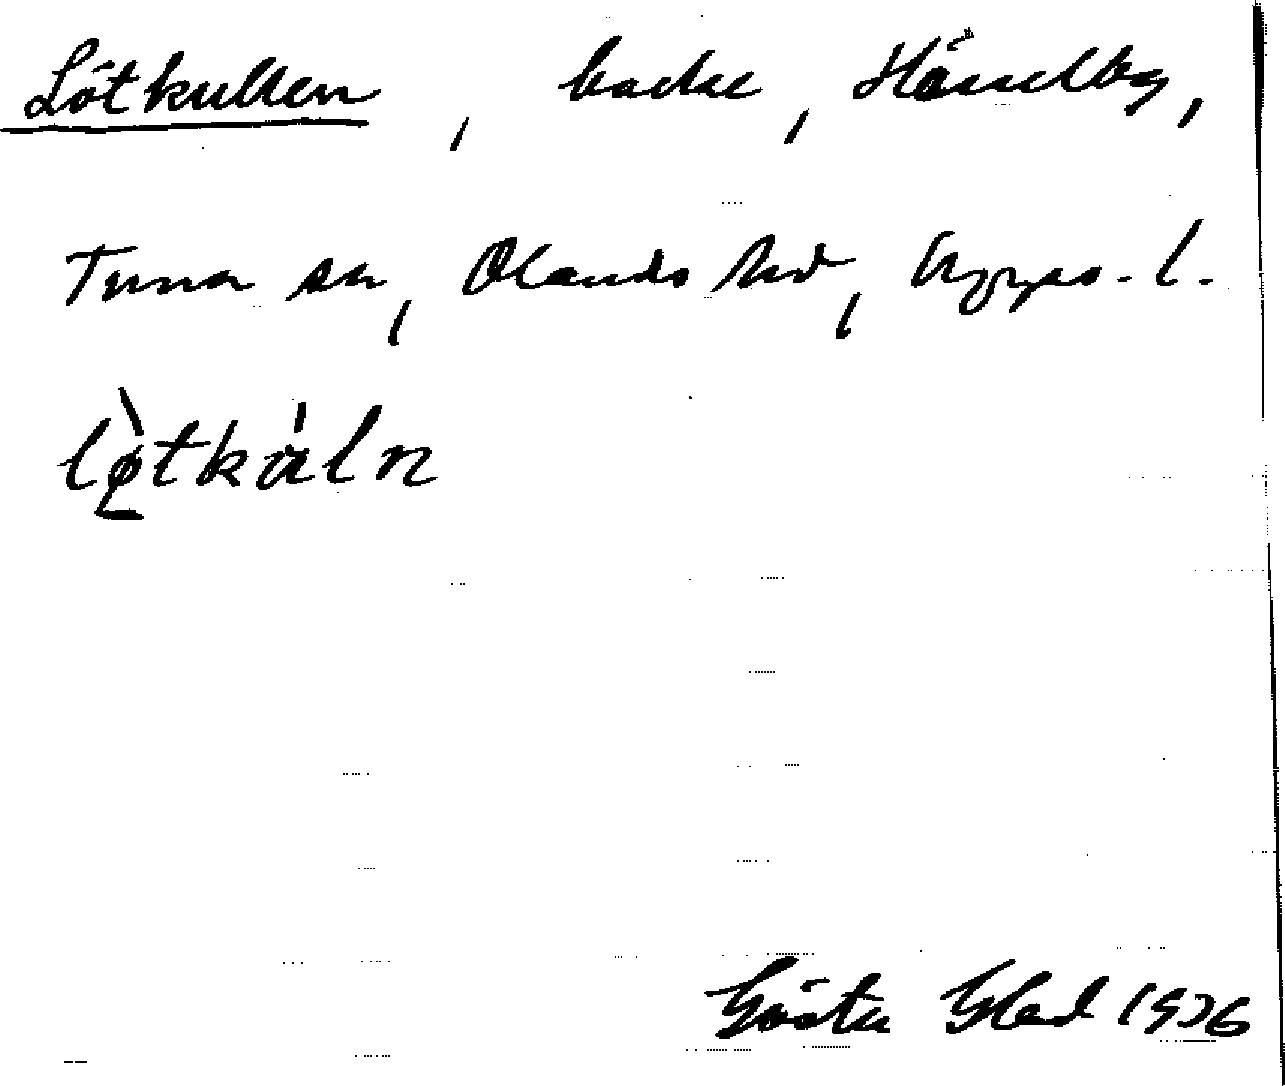 Lötkullen, backe, Hässelby,
Tuna sn, Olands hd, Upps. l.
lø̀tkáln
Gösta Blad 1936